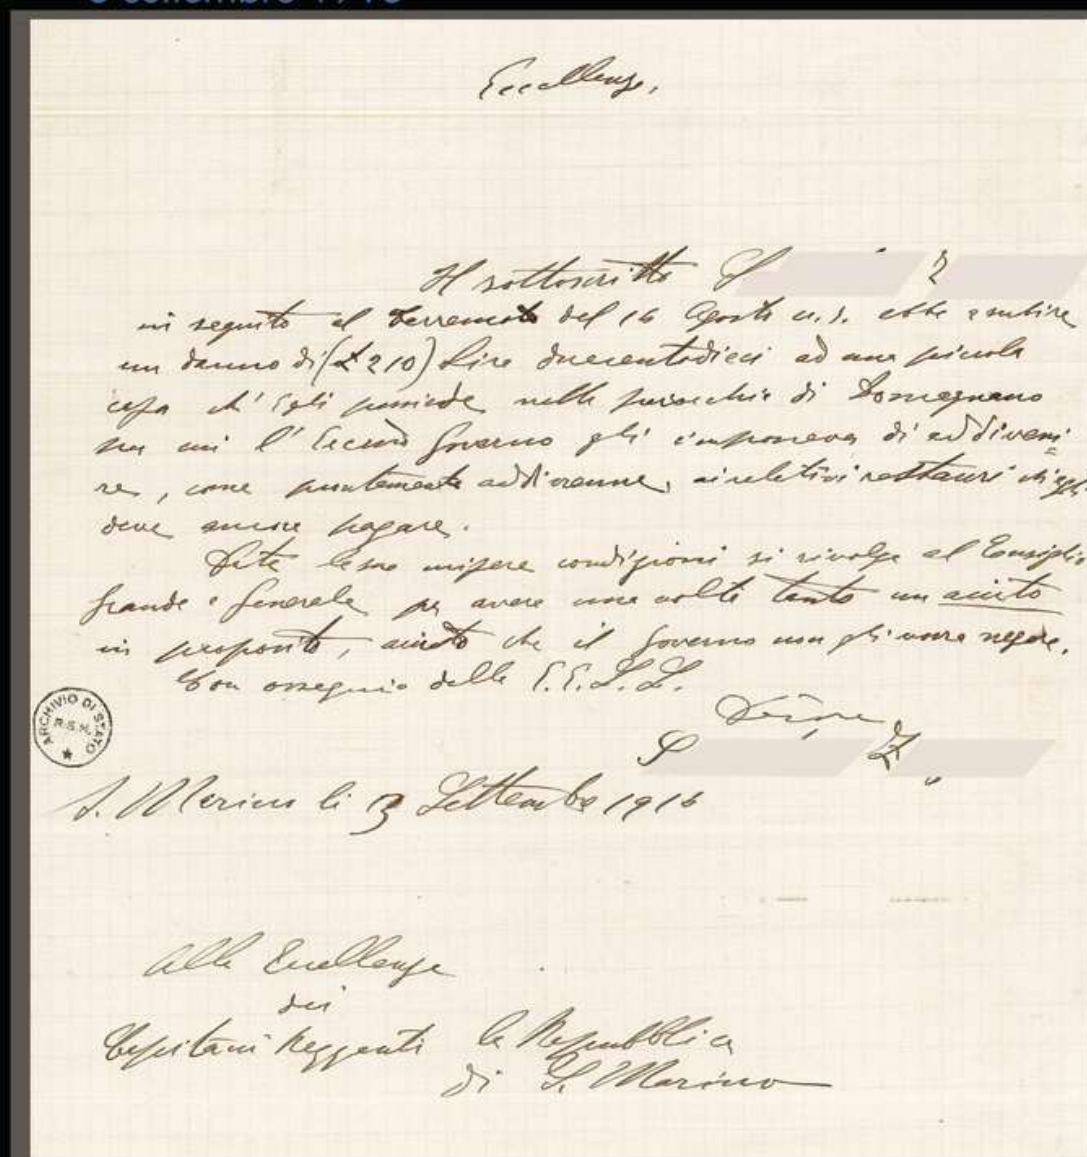 settembre 1916
Eccellenze,
Il sottoscritto S Z
in seguito al terremoto del 16 Agosto u.s. ebbe a subire
un danno di (£ 210) Lire duecentodieci ad una piccola
casa ch'Egli possiede nella parrocchia di Domagnano
per cui l'Eccmo Governo gli imponeva di addiveni
re, come prontamente addivenne, ai relativi restauri ch'egli
deve ancora pagare.
Date le sue misere condizioni si rivolge al Consiglio
Grande e Generale per avere una volta tanto un aiuto
in proposito, aiuto che il Governo non gli vorrà negare.
Con ossequio delle E.E. L.L.
S Z
S. Marino li 3 Settembre 1916
ARCHIVIO DI STATO
R.S.M.
Alle Eccellenze
dei
Capitani Reggenti la Repubblica
di S. Marino